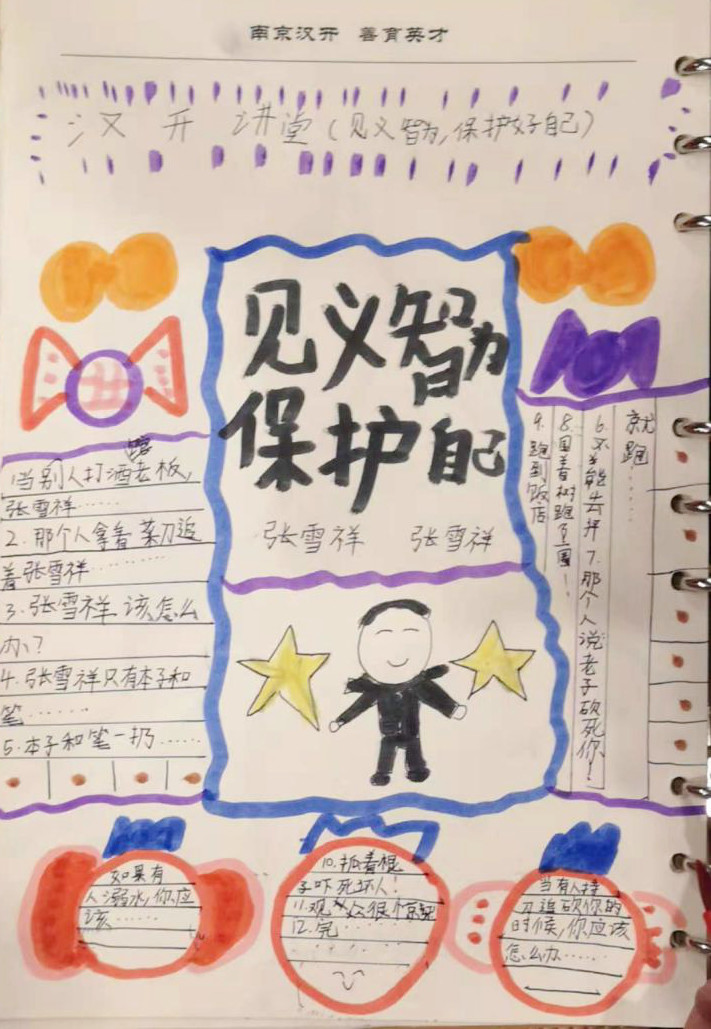 南京汉开 善育英才
汉开讲堂(见义智为,保护好自己)
见义智为
保护自己
张雪祥 张雪祥
1.当别人打酒老板,
张雪祥……
2.那个人拿着菜刀追
着张雪祥………
3.张雪祥该怎么
办?
4.张雪祥只有本子和
笔……
5.本子和笔一扔……
就跑……
6.不能去开7.那个人说老子砍死你!
8.围着树跑
9.跑到饭店
如果有
人溺水,你应
该……
10.抓着棍
子吓死坏人!
11.观众很
12.完……
当有人持
刀追砍你的
时候,你应该
怎么办……